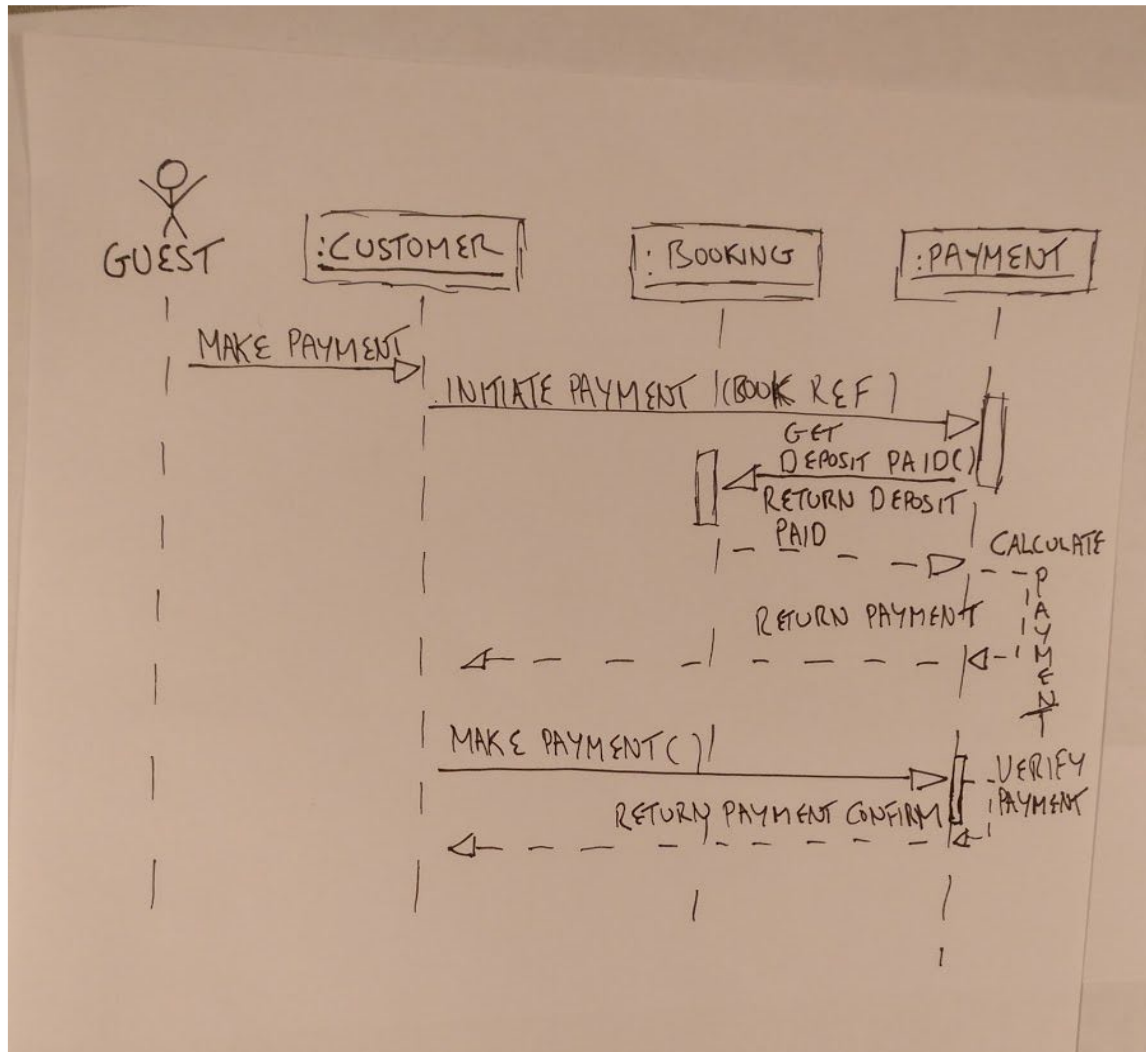 GUEST
:CUSTOMER
: BOOKING
:PAYMENT
MAKE PAYMENT
INITIATE PAYMENT (BOOK REF)
GET
DEPOSIT PAID()
RETURN DEPOSIT
PAID
CALCULATE
PAYMENT
RETURN PAYMENT
MAKE PAYMENT()
VERIFY
PAYMENT
RETURN PAYMENT CONFIRM